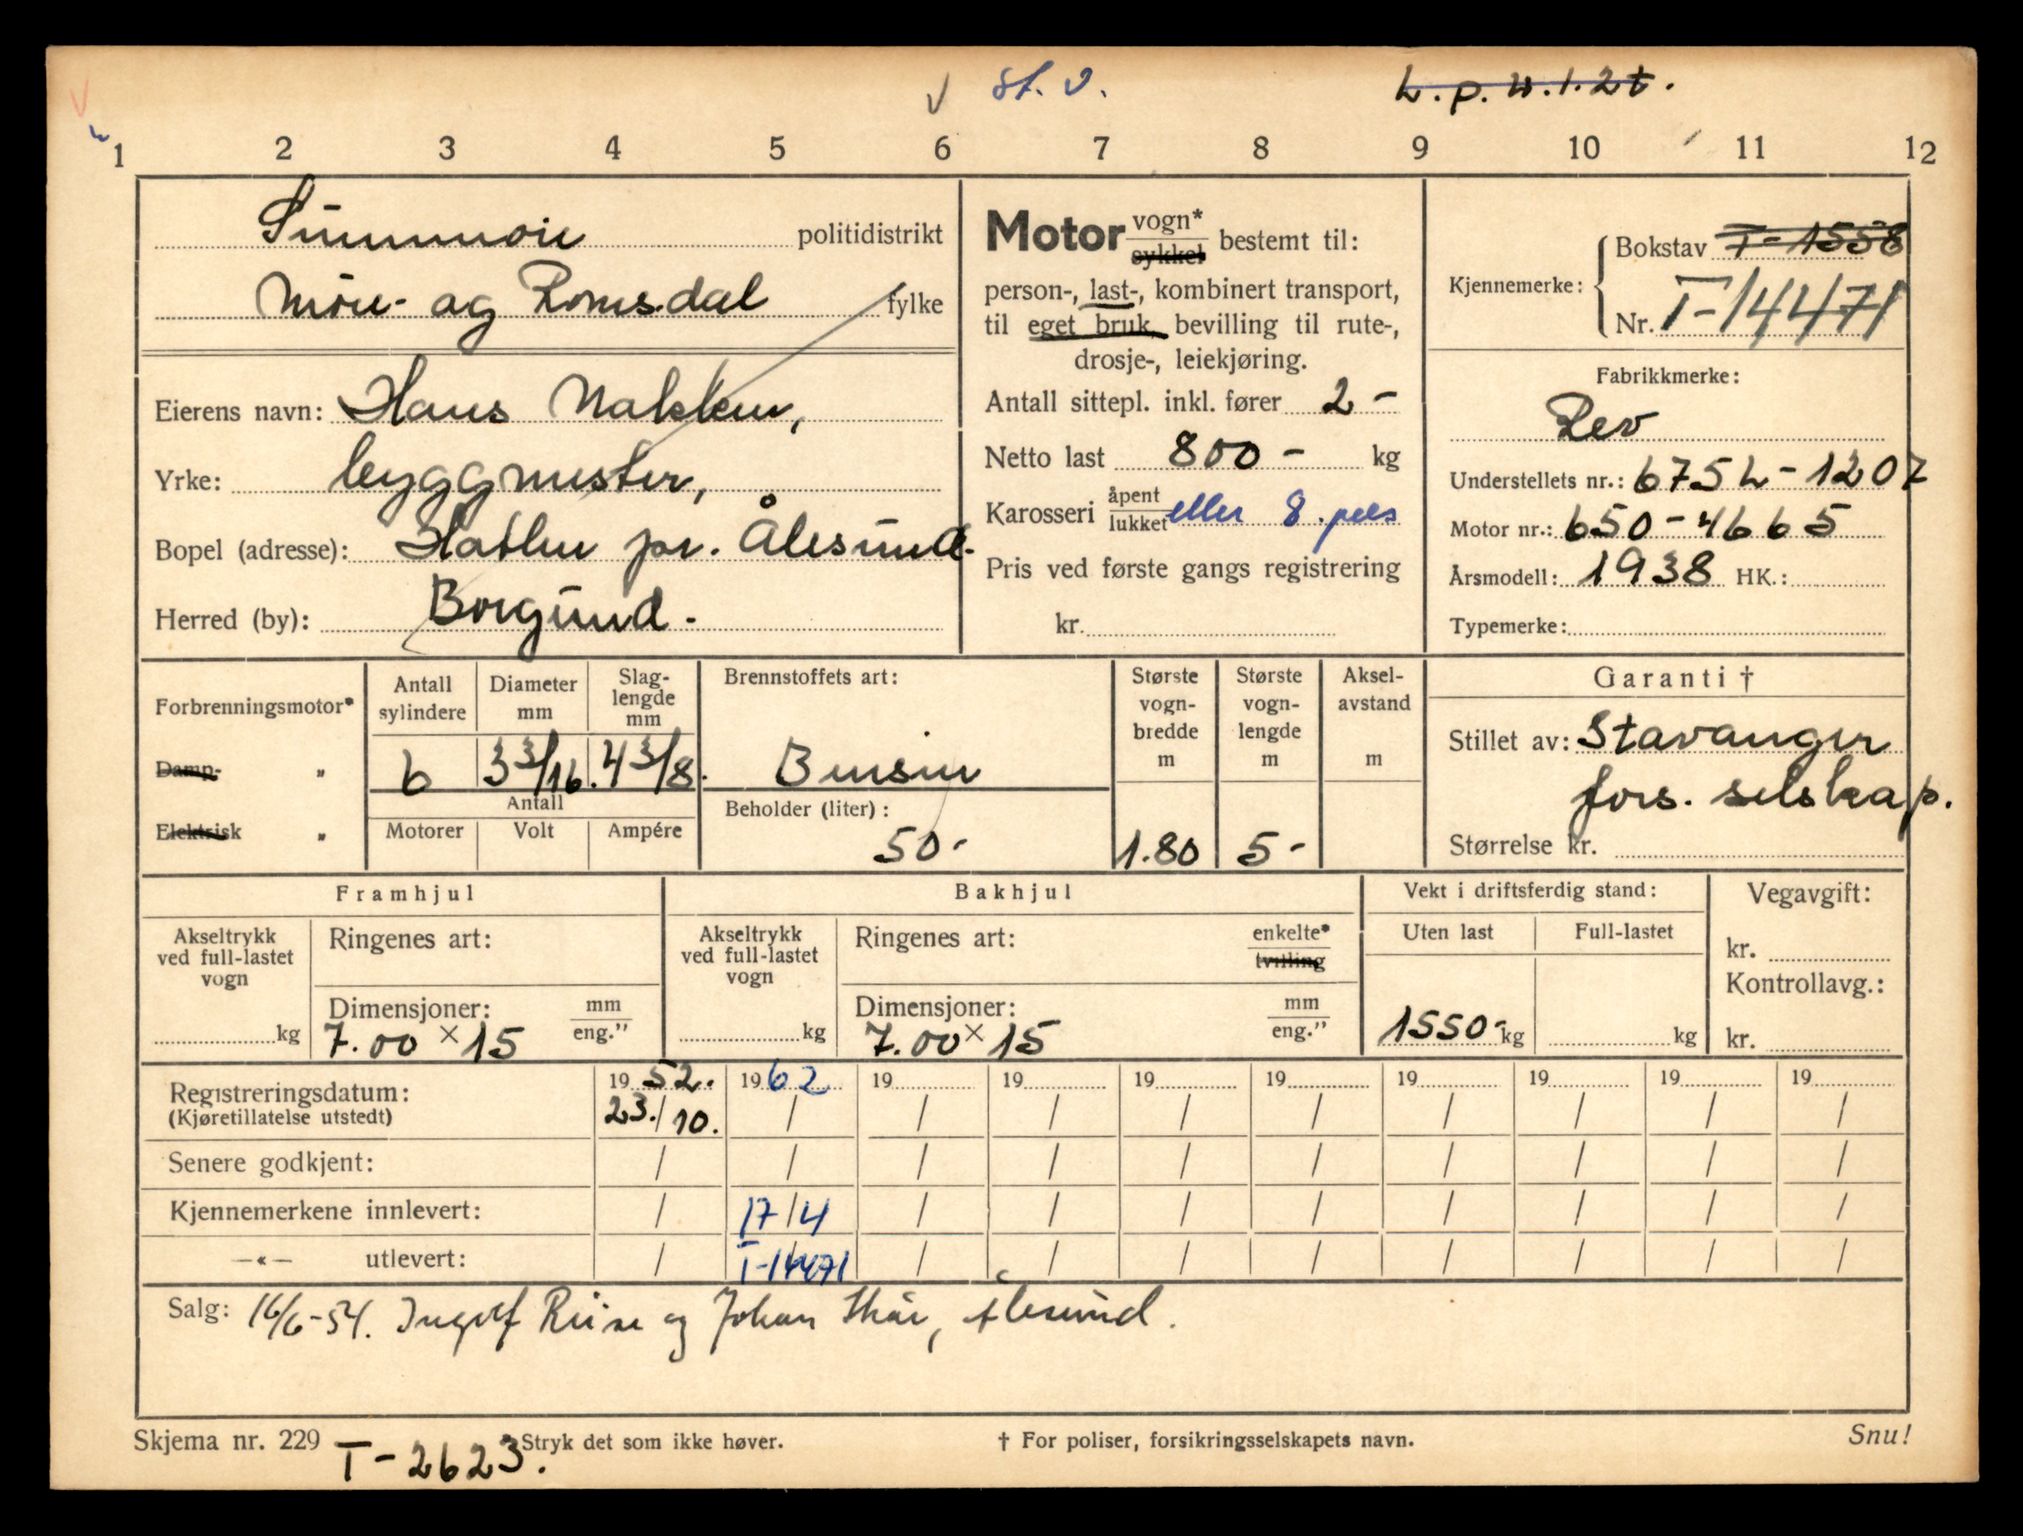 V
V
st. v.
L.p.w.1.2t.
1 2 3 4 5 6 7 8 9 10 11 12
Sunnmøre politidistrikt
Møre- og Romsdal fylke
Eierens navn: Hans Nakken,
Yrke: byggmester,
Bopel (adresse): Hatlen pr. Ålesund.
Herred (by): Borgund.
Motor vogn* / sykkel bestemt til:
person-, last-, kombinert transport,
til eget bruk, bevilling til rute-,
drosje-, leiekjøring.
Antall sittepl. inkl. fører 2 -
Netto last 800 - kg
Karosseri åpent / lukket eller 8. pers
Pris ved første gangs registrering
kr.
Kjennemerke: Bokstav T-1558
Nr. T-14471
Fabrikkmerke:
Reo
Understellets nr.: 675L-1207
Motor nr.: 650-4665
Årsmodell: 1938 HK.:
Typemerke:
Forbrenningsmotor*
Damp- "
Elektrisk "
Antall sylindere
6
Diameter mm
3 3/16.
Slaglengde mm
4 3/8.
Antall
Motorer Volt Ampére
Brennstoffets art:
Bensin
Beholder (liter):
50-
Største vognbredde m
1.80
Største vognlengde m
5-
Akselavstand m
Garanti †
Stillet av: Stavanger
fors. selskap.
Størrelse kr.
Framhjul
Akseltrykk ved full-lastet vogn
kg
Ringenes art:
Dimensjoner: mm / eng."
7.00 x 15
Bakhjul
Akseltrykk ved full-lastet vogn
kg
Ringenes art: enkelte* / tvilling
Dimensjoner: mm / eng."
7.00 x 15
Vekt i driftsferdig stand:
Uten last Full-lastet
1550- kg kg
Vegavgift:
kr.
Kontrollavg.:
kr.
Registreringsdatum: 19 52. 19 62 19 19 19 19 19 19 19 19
(Kjøretillatelse utstedt) 23./10. / / / / / / / / /
Senere godkjent: / / / / / / / / / /
Kjennemerkene innlevert: / 17/4 / / / / / / / /
—«— utlevert: / T-14471 / / / / / / / /
Salg: 16/6-54. Ingolf Riise og Johan Skår, Ålesund.
Skjema nr. 229 T-2623. *Stryk det som ikke høver. † For poliser, forsikringsselskapets navn. Snu!